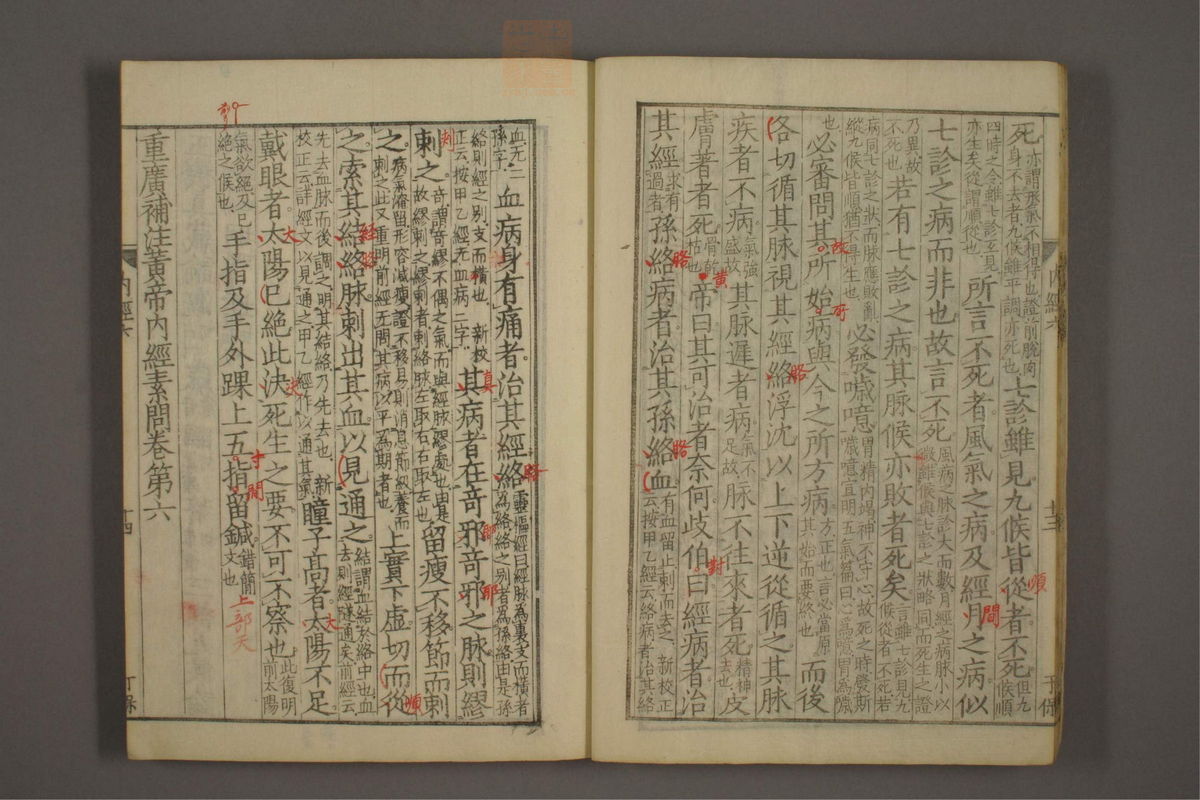 死亦謂形氣不相得也證前脫肉身不去者九候雖平調亦死也七診雖見九候皆從者不死但九候順
四時之令雖七診互見亦生矣從謂順從也所言不死者風氣之病及經月之病似
七診之病而非也故言不死風病之脈診大而數月經之病脈小以微雖候與七診之狀略同而死生之證
乃異故不死也若有七診之病其脈候亦敗者死矣言雖七診見九候從者不死若
病同七診之狀而脈應敗亂縱九候皆順猶不得生也必發噦噫胃精內竭神不守心故死之時發斯噦噫宣明五氣篇曰心為噫胃為噦
也必審問其所始病與今之所方病方正也言必當原其始而要終也而後
各切循其脈視其經絡浮沈以上下逆從循之其脈
疾者不病氣強盛故其脈遲者病氣不足故脈不往來者死精神去也皮
膚著者死骨乾枯也帝曰其可治者奈何歧伯曰經病者治
其經求有過者孫絡病者治其孫絡血有血留止刺而去之新校正云按甲乙經云絡病者治其絡
血无二孫字血病身有痛者治其經絡靈樞經曰經脉為裏支而橫者為絡絡之別者為孫絡由是孫
絡則經之别支而横也新校正云按甲乙經无血病二字其病者在奇邪奇邪之脉則繆
刺之奇謂奇繆不偶之氣而與經脉繆處也由是故繆刺之繆刺者刺絡脉左取右右取左也留瘦不移節而刺
之病氣淹留形容減瘦證不移易則消息節級養而刺之此又重明前經无問其病以平為期者也上實下虛切而從
之索其結絡脉刺出其血以見通之結謂血結於絡中也血去則經隧通矣前經云
先去血脉而後調之明其結絡乃先去也新校正云詳經文以見通之甲乙經作以通其氣瞳子高者太陽不足
戴眼者太陽已絕此決死生之要不可不察也此復明前太陽
氣欲絕及已絕之候也手指及手外踝上五指留鍼錯簡文也
重廣補注黃帝內經素問卷第六
內經六
十三
內經六
十四
順
間
故
所
絡
黃
對
絡
絡
絡
刺
真
耶
耶
順
經
絡
大
大
決
寸
間
上部天